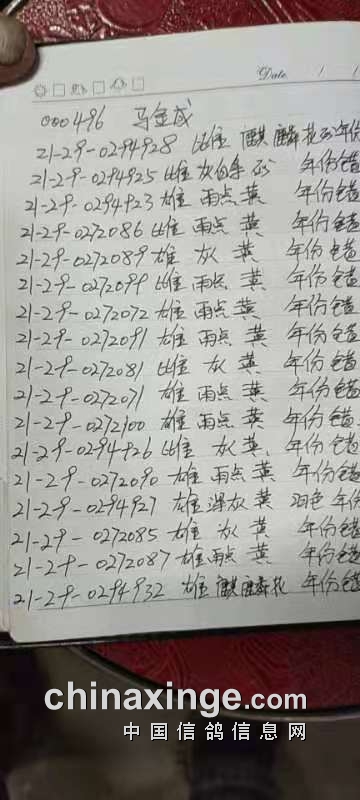 Date / /
000496 马金成
21-29-0294928 雌 麒麟花 砂 年份
21-29-0294925 雌 灰白条 砂 年份错
21-29-0294923 雄 雨点 黄 年份错
21-29-0272086 雌 雨点 黄 年份错
21-29-0272089 雄 灰 黄 年份错
21-29-0272099 雌 雨点 黄 年份错
21-29-0272072 雄 雨点 黄 年份错
21-29-0272091 雄 雨点 黄 年份错
21-29-0272081 雌 灰 黄 年份错
21-29-0272071 雄 雨点 黄 年份错
21-29-0272100 雄 雨点 黄 年份错
21-29-0294926 雌 灰 黄, 年份错
21-29-0272090 雄 雨点 黄 年份错
21-29-0294927 雄 深灰 黄 羽色 年份
21-29-0272085 雄 灰 黄 年份错
21-29-0272087 雄 雨点 黄 年份错
21-29-0294932 雄 麒麟花 年份错
chinaxinge.com
中国信鸽信息网